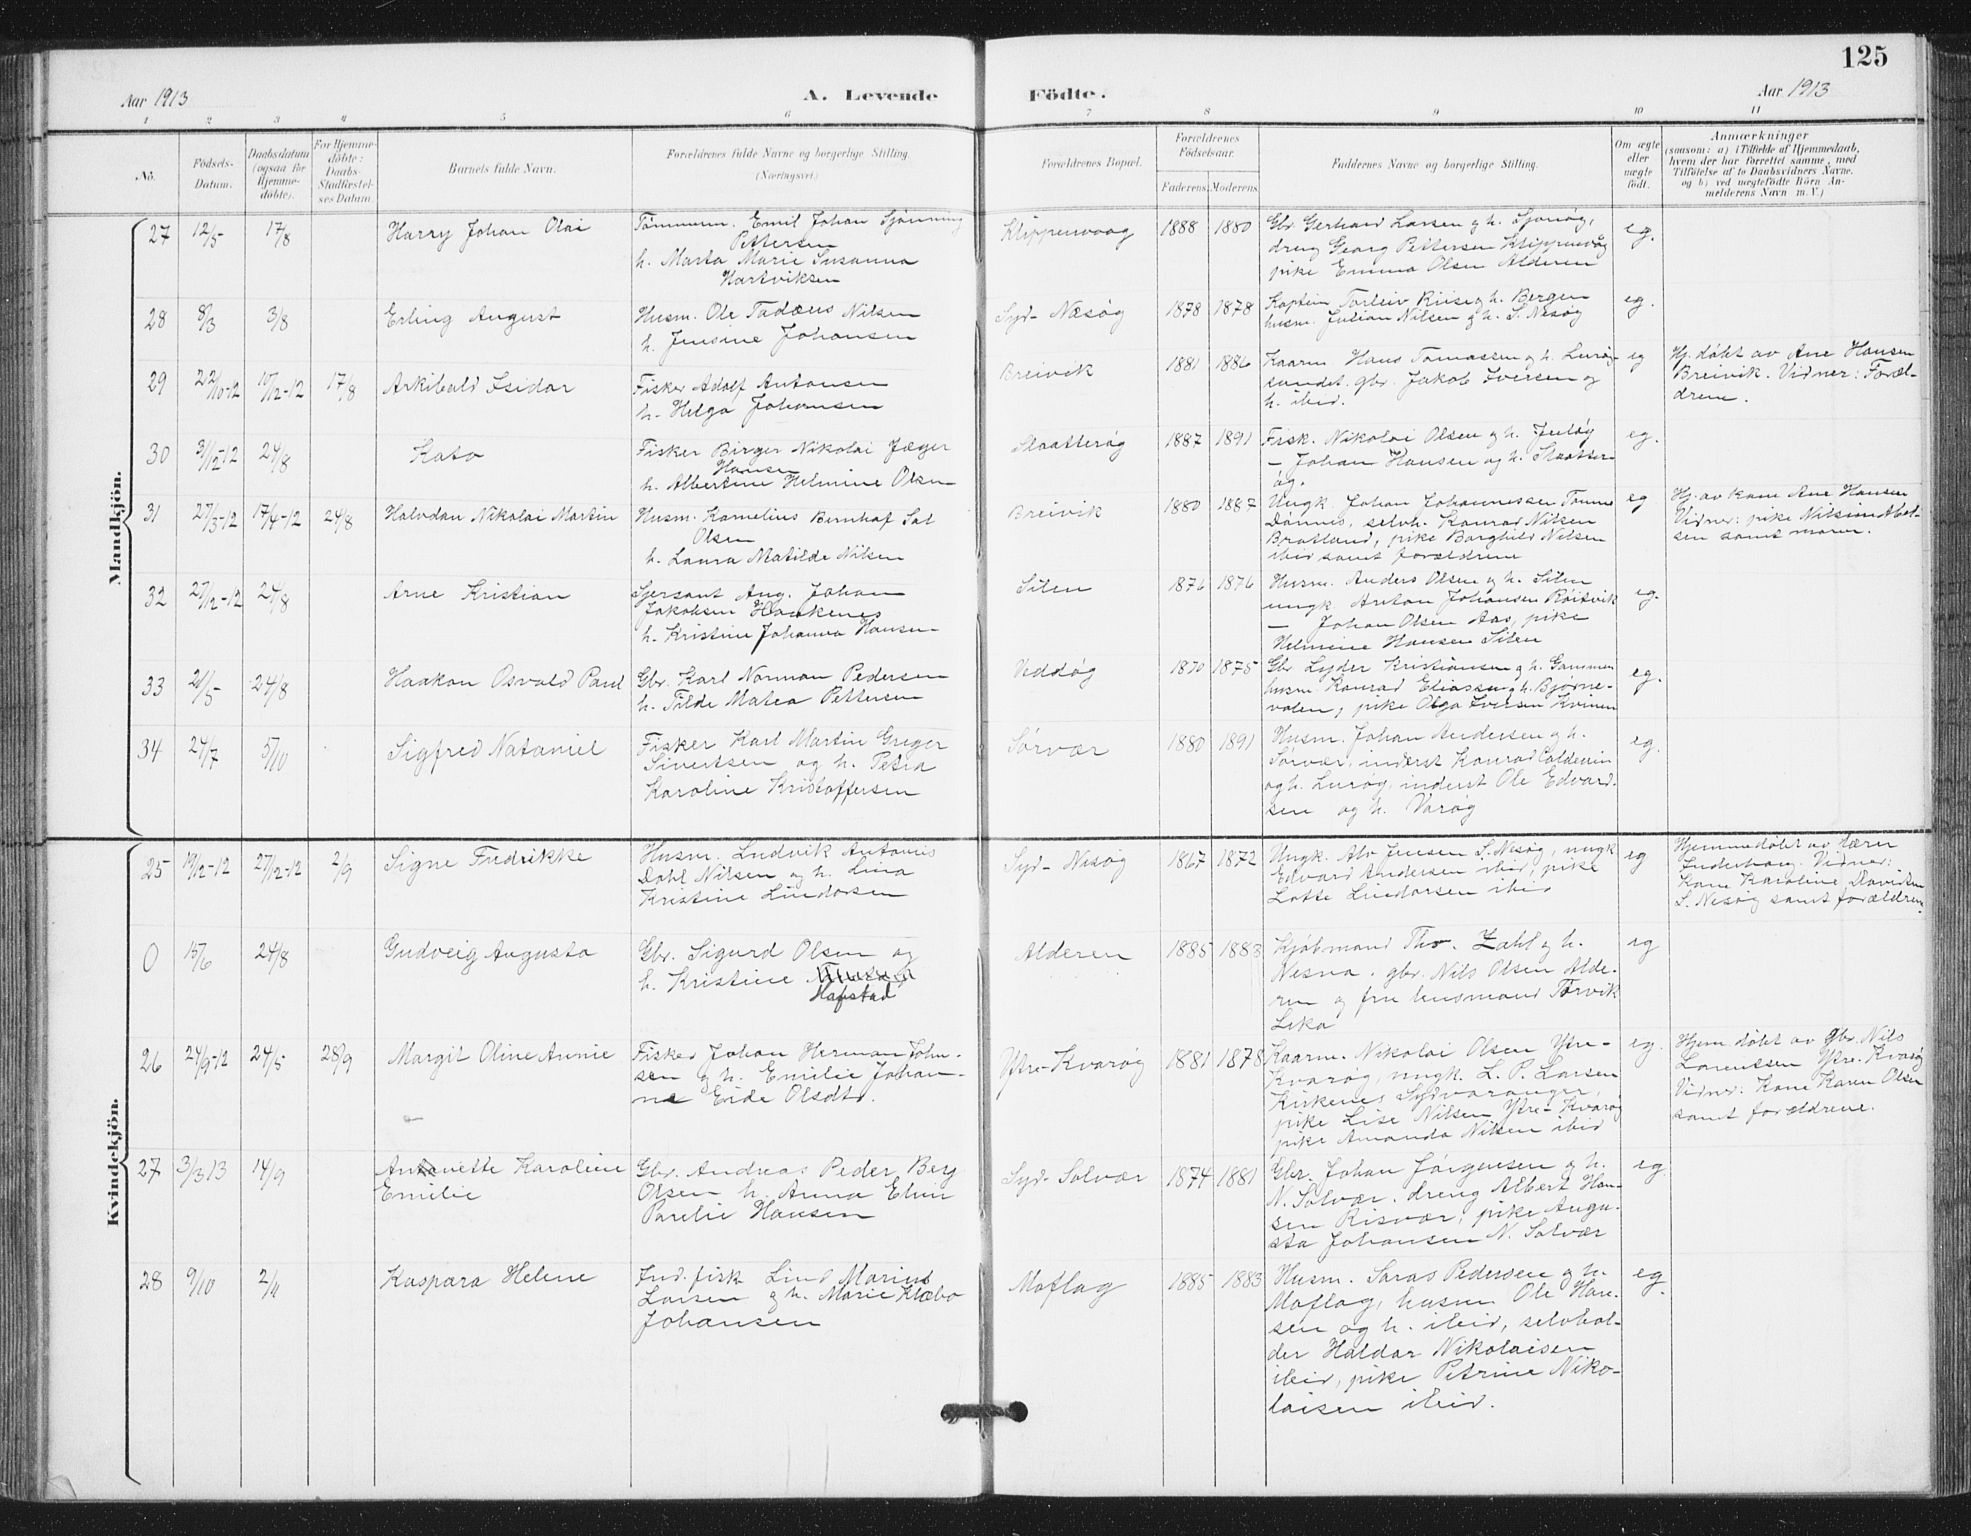 125
Aar 1913
A. Levende Födte.
Aar 1913
1 2 3 4 5 6 7 8 9 10 11
No.
Födsels-Datum.
Daabsdatum (ogsaa for Hjemme-döbte).
For Hjemme-döbte: Daabs-Stadfæstel-ses Datum.
Barnets fulde Navn.
Forældrenes fulde Navne og borgerlige Stilling.
(Næringsvei.)
Forældrenes Bopæl.
Forældrenes Födselsaar.
Faderens. Moderens.
Faddernes Navne og borgerlige Stilling.
Om ægte eller uægte födt.
Anmærkninger
(saasom: a) i Tilfælde af Hjemmedaab,
hvem der har forrettet samme, med
Tilföielse af to Daabsvidners Navne,
og b) ved uegtefödte Börn An-
melderens Navn m. V.)
Mandkjön.
27 12/5 17/8 Harry Johan Olai
Tømmerm. Emil Johan Sjønning
Pettersen
h. Marta Marie Susanna
Hartviksen
Klippenvaag 1888 1880
Gbr. Gerhard Larsen og h. Sjonøg,
dreng Georg Pettersen Klippenvåg
pike Emma Olsen Alderen
eg.
28 8/3 3/8 Erling August
Husm. Ole Tadæus Nilsen
h. Jensine Johansen
Syd-Næsøg 1878 1878
Kaptein Torleiv Riise og h. Bergen
husm. Julian Nilsen og h. S. Nesøg
eg.
29 22/10-12 10/12-12 17/8 Arkibald Isidor
Fisker Adolf Antonsen
h. Helga Johansen
Breivik 1881 1886
Kaarm. Hans Tomassen og h. Lurøg-
sundet. gbr. Jakob Iversen og
h. ibid.
eg
Hj. døbt av Ane Hansen
Breivik. Vidner: Foræl-
drene.
30 3/12-12 24/8 Kato
Fisker Birger Nikolai Jæger
Hansen
h. Albertine Helmine Olsen
Slaatterøg 1887 1891
Fisk. Nikolai Olsen og h.
— Johan Hansen og h. Slaatter-
øg.
eg.
31 27/3-12 17/4-12 24/8 Halvdan Nikolai Martin
Husm. Kornelius Bernhof Sal
Olsen
h. Laura Matilde Nilsen
Breivik 1880 1887
Ungk. Johan Johannessen Tomme
Dønnes, selvh. Konrad Nilsen
Bratland, pike Borghild Nilsen
ibid samt forældrene
eg
Hj. av kone Ane Hansen
Vidner: pike Abel-
sen samt moren.
32 27/12-12 24/8 Arne Kristian
Sjersant Aug. Johan
Jakobsen Haakenes
h. Kristine Johanna Hansen
Silen 1876 1876
Husm. Anders Olsen og h. Silen
ungk Anton Johansen Røitvik
— Johan Olsen Aas, pike
Helmine Hansen Silen
eg.
33 2/5 24/8 Haakon Osvald Paul
Gbr. Karl Norman Pedersen
h. Tilde Matea Pettersen
Veddøg 1870 1875
Gbr Lyder Kristiansen og h. Gammen
husm. Konrad Eliassen og h. Bjørne-
valen, pike Olga Iversen Kvinen
eg.
34 24/7 5/10 Sigfred Nataniel
Fisker Karl Martin Greger
Sivertsen og h. Petra
Karoline Kristoffersen
Sørvær 1880 1891
Husm. Johan Andersen og h.
Sørvær, inderst Konrad Coldevin
og h. Lurøg, inderst Ole Edvard-
sen og h. Varøg
eg.
Kvindekjön.
25 19/12-12 27/12-12 2/9 Signe Fredrikke
Husm. Ludvik Antonis
Dahl Nilsen og h. Lina
Kristine Lindorsen
Syd-Nesøg 1867 1872
Ungk. Alv Jensen S. Nesøg, ungk
Edvard Andersen ibid, pike
Lotte Lindorsen ibid
eg
Hjemmedøbt av lærer
Inderhaug. Vidner:
Kone Karoline Davidsen
S. Nesøg samt forældrene.
0 15/6 24/8 Gudveig Augusta
Gbr. Sigurd Olsen og
h. Kristine
Hafstad
Alderen 1885 1883
Kjøbmand Tho. Zahl og h.
Nesna. gbr. Nils Olsen Alde-
ren og fru husmand Torvik
Leka
eg
26 24/9-12 24/5 28/9 Margit Oline Annie
Fisker Johan Herman John-
sen og h. Emilie Johan-
ne Eide Olsdt.
Ytre-Kvarøg 1881 1878
Kaarm. Nikolai Olsen Ytre-
Kvarøg, ungk. L. P. Larsen
Kirkenes Sydvaranger,
pike Lise Nilsen Ytre-Kvarøg
pike Amanda Nilsen ibid
eg.
Hjem døbt av gbr. Nils
Lorentsen Ytre-Kvarøg
Vidner: Kone Karen Olsen
samt forældrene.
27 3/3 13 14/9 Antonette Karoline
Emilie
Gbr. Andreas Peder Berg
Olsen h. Anna Elen
Parelie Hansen
Syd-Solvær 1874 1881
Gbr. Johan Jørgensen og h.
N. Solvær. dreng Albert Han-
sen Risvær, pike Augu-
sta Johansen N. Solvær
eg.
28 9/10 2/11 Kaspara Helene
Ind. fisk Lind Marius
Larsen og h. Marie Klæbo
Johansen
Moflag 1885 1883
Husm. Saras Pedersen og h.
Moflag, husm. Ole Han-
sen og h. ibid, selvhol-
der Haldor Nikolaisen
ibid, pike Petrine Niko-
laisen ibid.
eg.